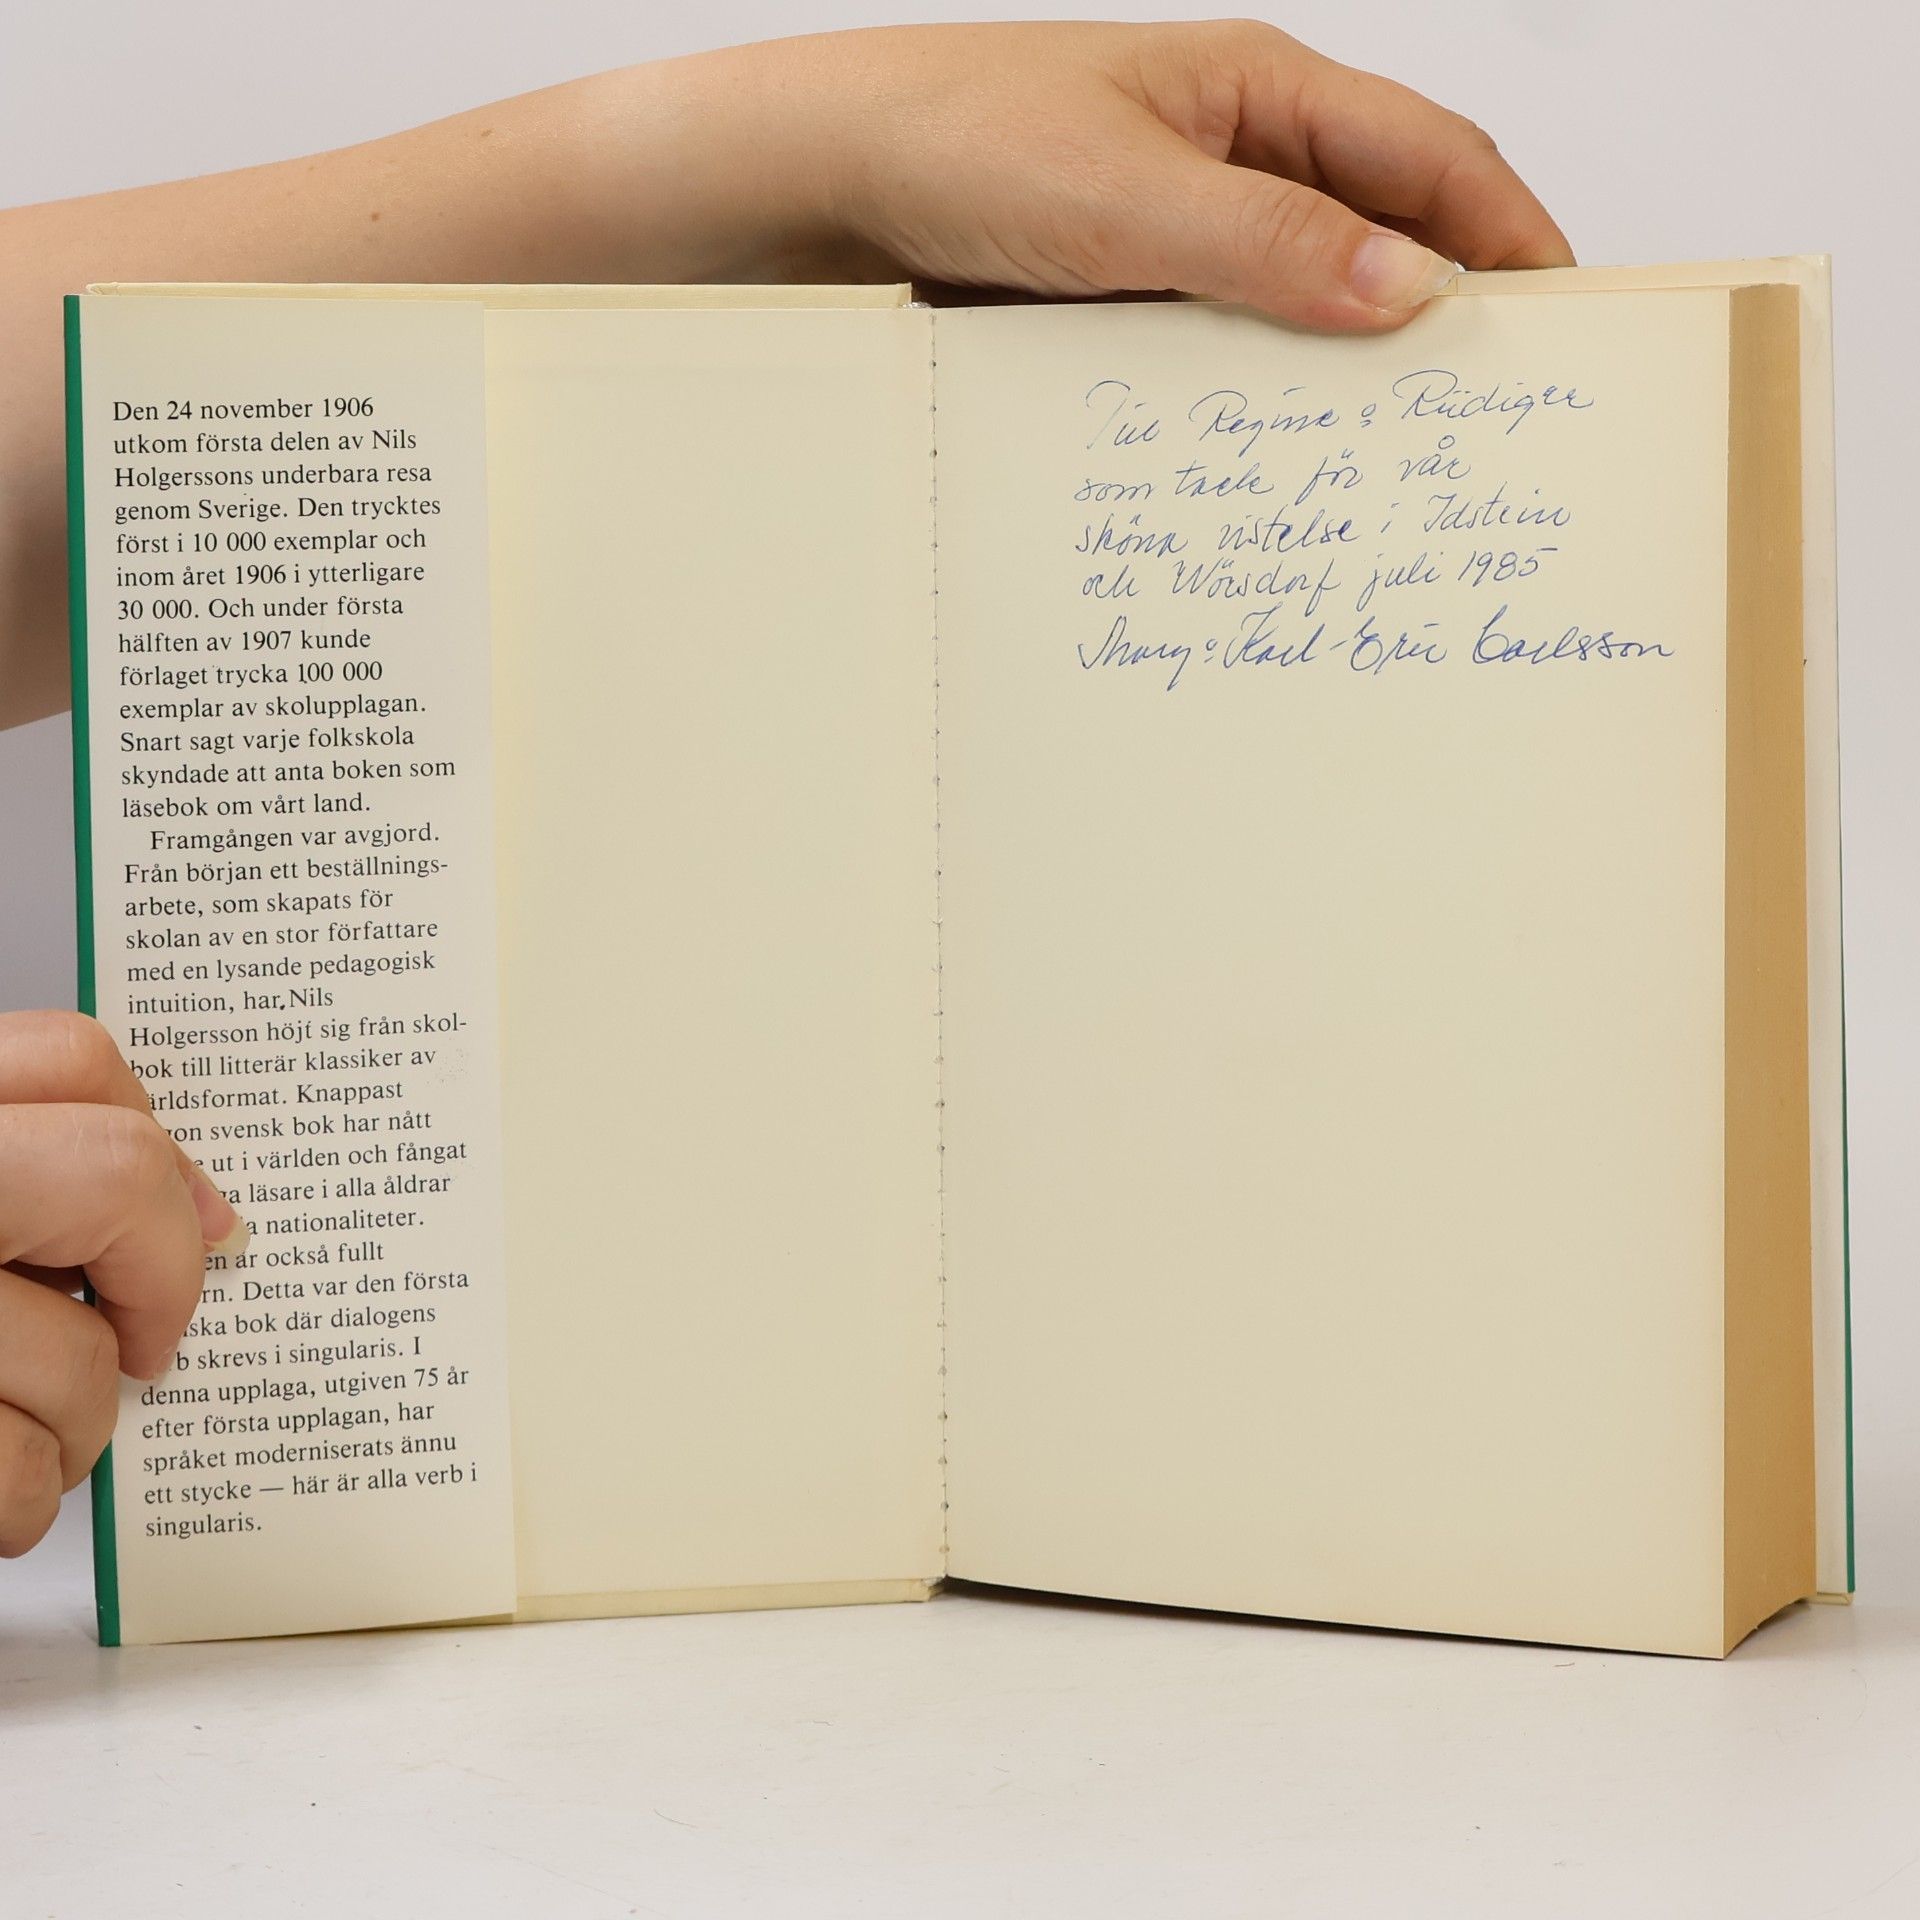 Den 24 november 1906
utkom första delen av Nils
Holgerssons underbara resa
genom Sverige. Den trycktes
först i 10 000 exemplar och
inom året 1906 i ytterligare
30 000. Och under första
hälften av 1907 kunde
förlaget trycka 100 000
exemplar av skolupplagan.
Snart sagt varje folkskola
skyndade att anta boken som
läsebok om vårt land.
Framgången var avgjord.
Från början ett beställnings-
arbete, som skapats för
skolan av en stor författare
med en lysande pedagogisk
intuition, har Nils
Holgersson höjt sig från skol-
bok till litterär klassiker av
ärldsformat. Knappast
gon svensk bok har nått
ut i världen och fångat
läsare i alla åldrar
nationaliteter.
är också fullt
rn. Detta var den första
ska bok där dialogens
b skrevs i singularis. I
denna upplaga, utgiven 75 år
efter första upplagan, har
språket moderniserats ännu
ett stycke — här är alla verb i
singularis.
Till Regine o Rüdiger
som tack för vår
sköna vistelse i Idstein
och Wörsdorf juli 1985
Mary o Karl-Eric Carlsson